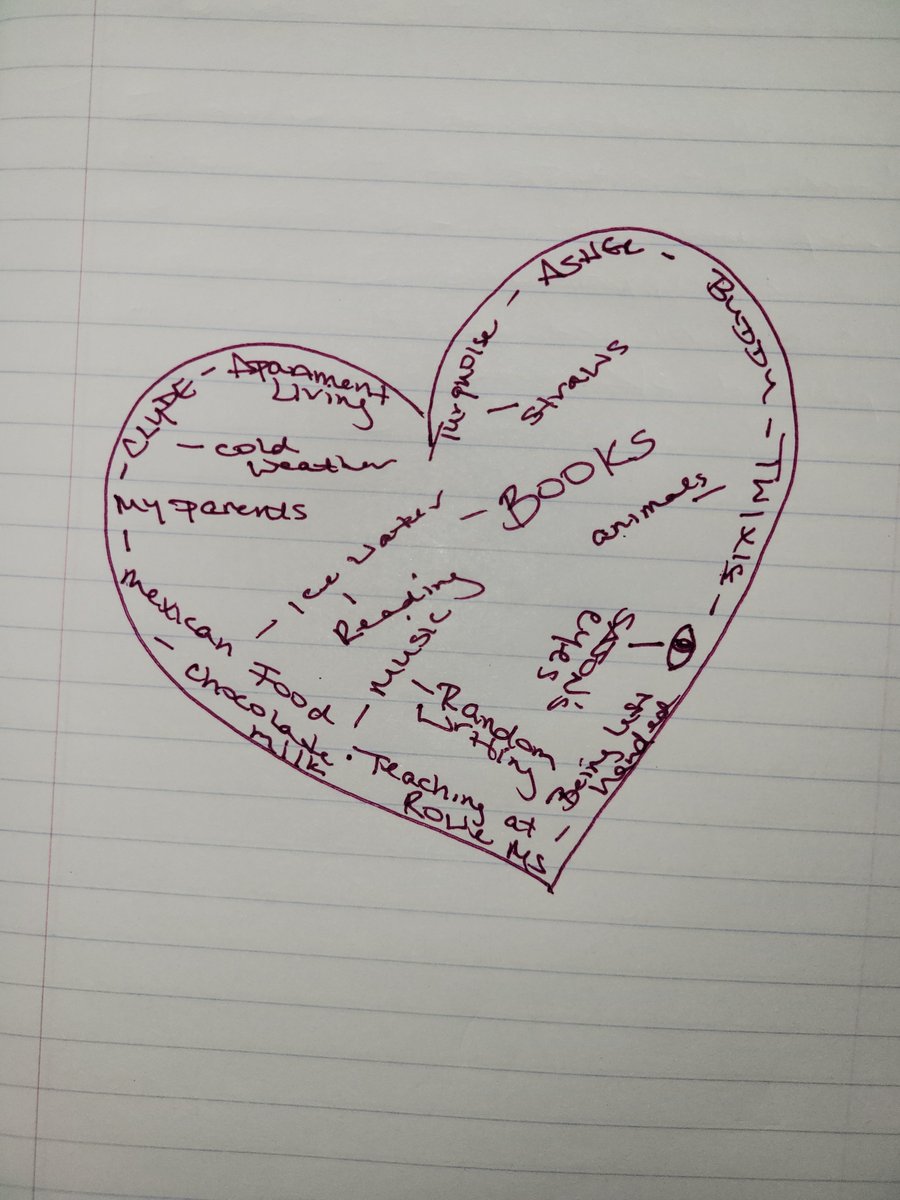 Turquoise - ASHER -
BUDDY -
TWIXIE -
- Straws
- CLYDE - Apartment
Living
- cold
weather
- BOOKS
animals -
My parents -
- Ice Water
- Reading
Mexican Food
- music
- chocolate
milk
- Random
Writing
eyes
- Being left
handed
· Teaching at
Rowe MS